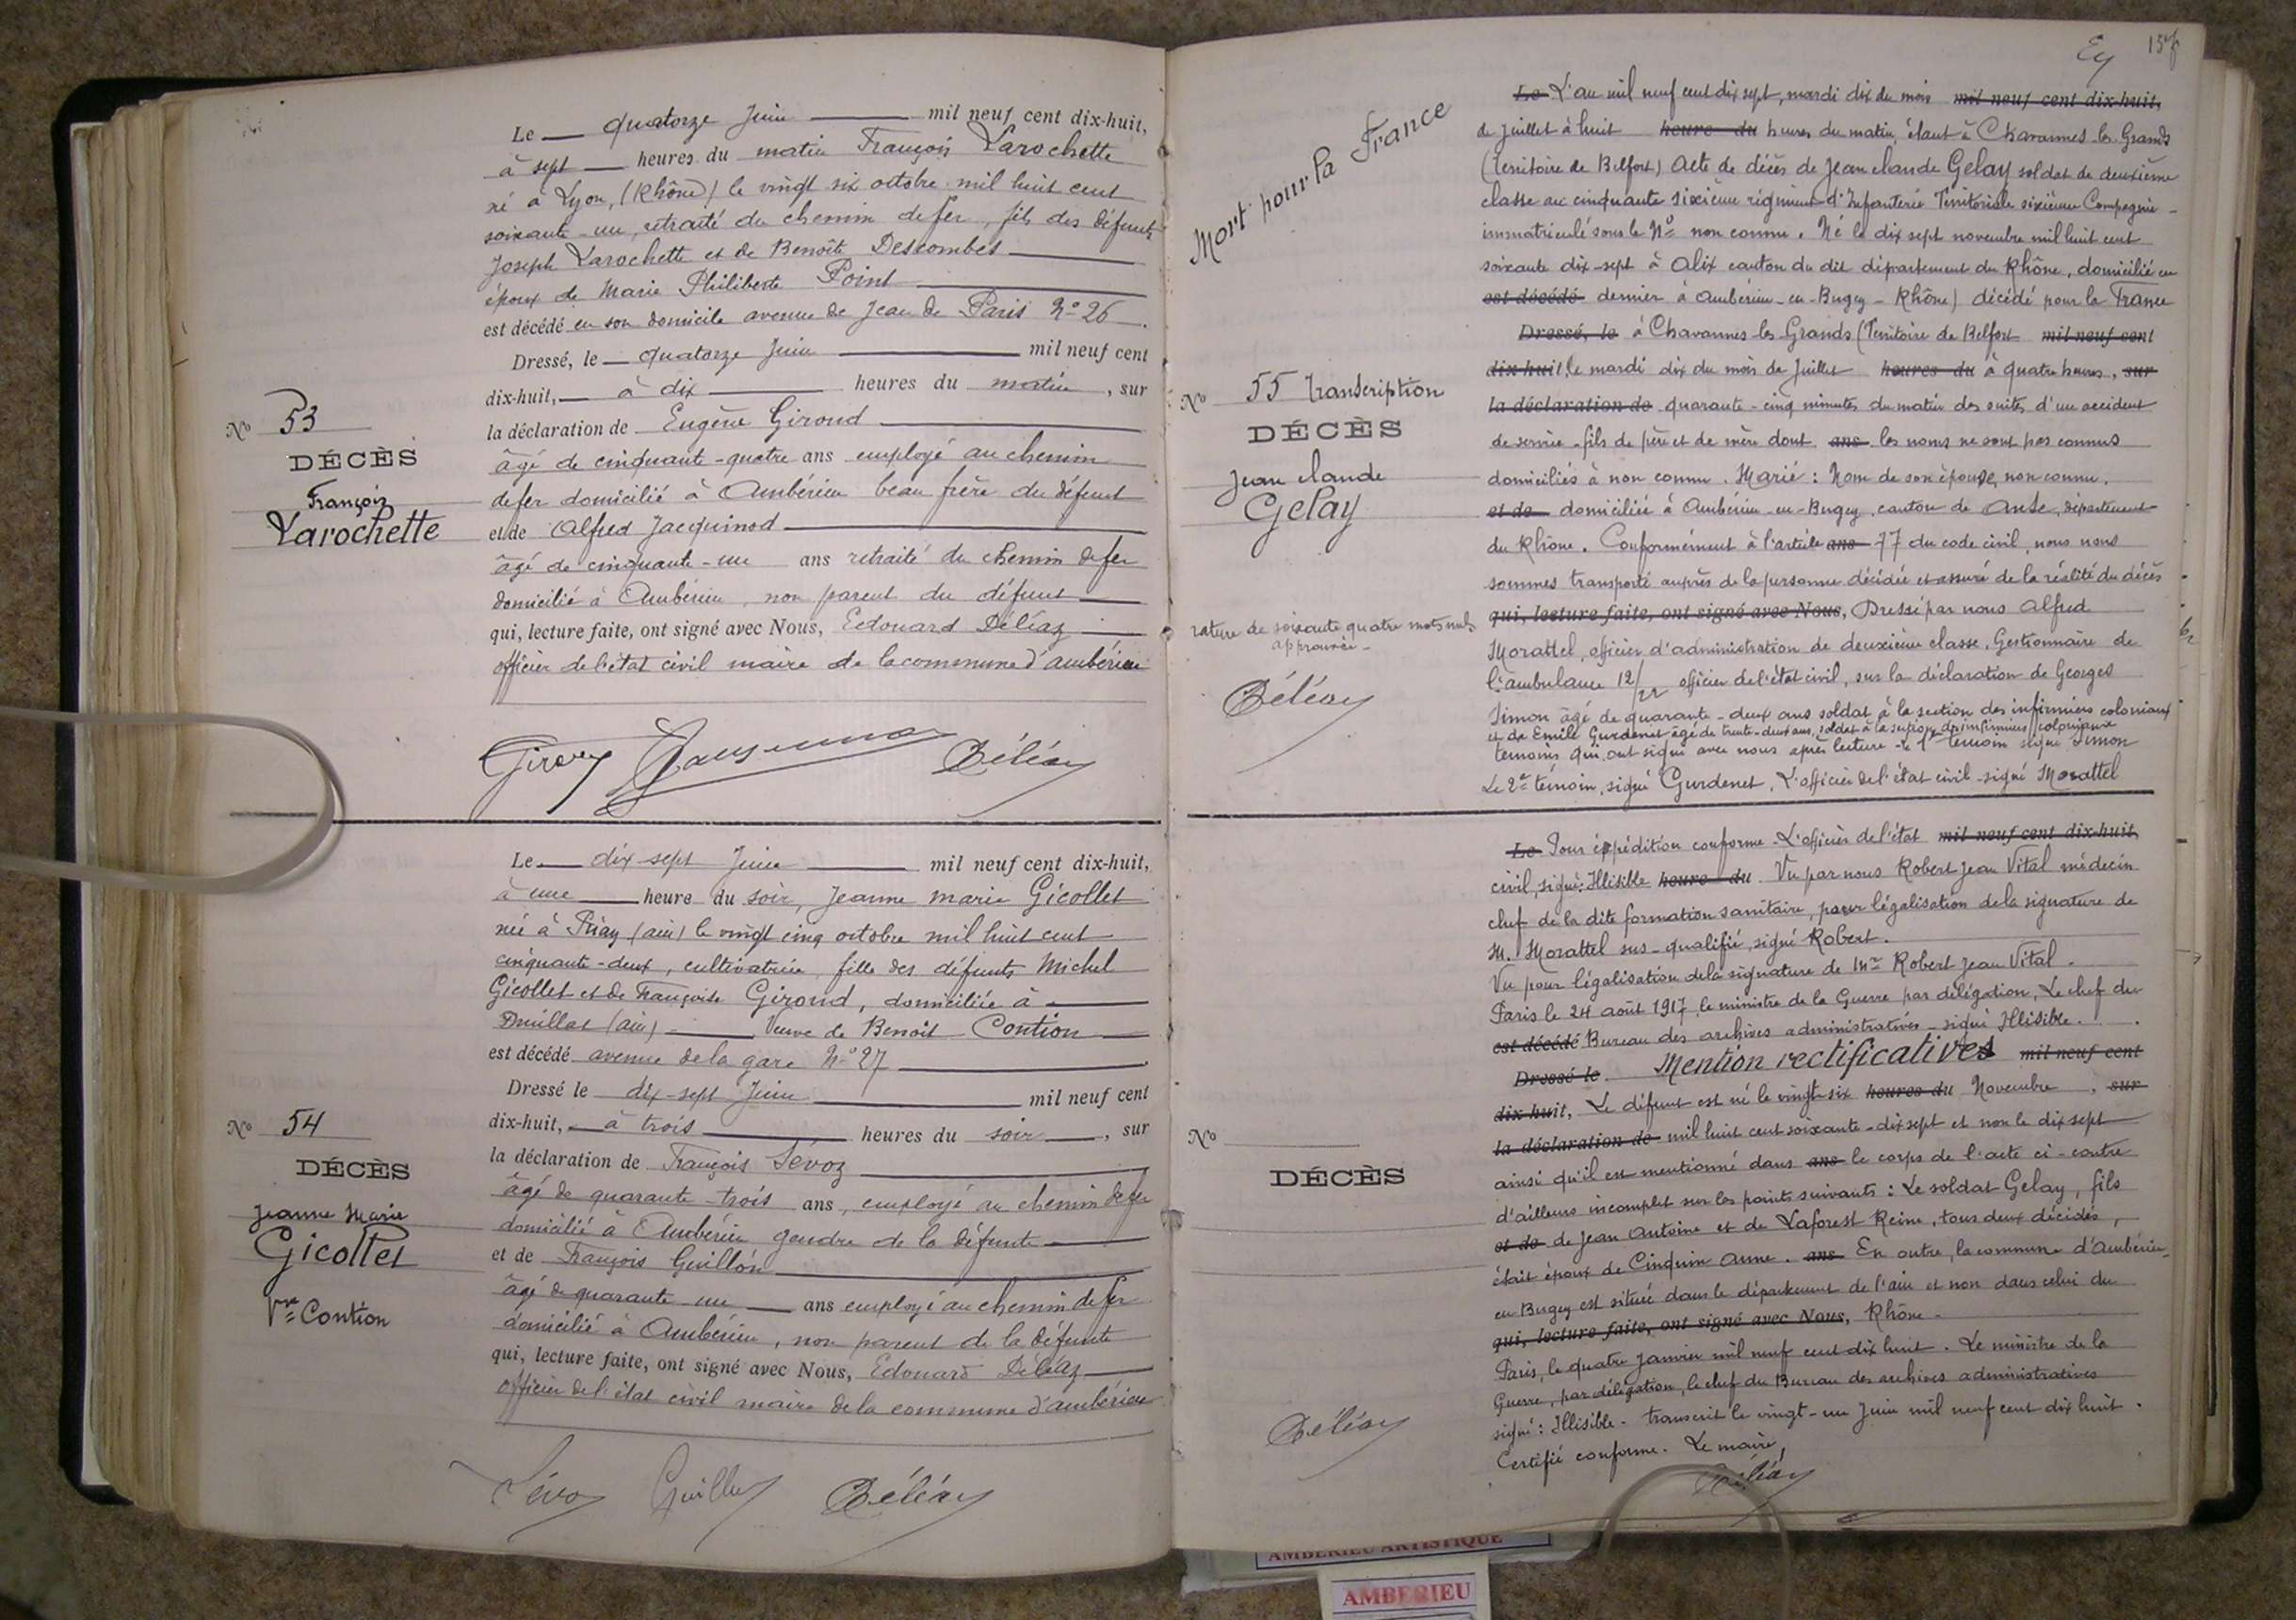 Le — quatorze Juin — mil neuf cent dix-huit,
à sept — heures du matin François Larochette
né à Lyon, (Rhône) le vingt six octobre mil huit cent
soixante-un, retraité du chemin de fer, fils des défunts
Joseph Larochette et de Benoîte Descombes
époux de Marie Philiberte Point
est décédé en son domicile avenue de Jean de Paris N° 26.
Dressé, le quatorze Juin — mil neuf cent
dix-huit, — à dix — heures du matin, sur
la déclaration de Eugène Giroud
âgé de cinquante-quatre ans employé au chemin
de fer domicilié à Ambérieu beau frère du défunt
et de Alfred Jacquinod
âgé de cinquante-un ans retraité du chemin de fer
domicilié à Ambérieu, non parent du défunt
qui, lecture faite, ont signé avec Nous, Edouard Déléaz
officier de l'état civil maire de la commune d'Ambérieu
N° 53
DÉCÈS
François
Larochette
Déléaz
Le — dix-sept Juin — mil neuf cent dix-huit,
à une — heure du soir, Jeanne Marie Gicollet
née à Priay (ain) le vingt cinq octobre mil huit cent
cinquante-deux, cultivatrice, fille des défunts Michel
Gicollet et de Françoise Giroud, domiciliée à
Druillat (ain) — Veuve de Benoit Contion
est décédé avenue de la gare N° 27
Dressé le dix-sept Juin — mil neuf cent
dix-huit, — à trois — heures du soir —, sur
la déclaration de François Sévoz
âgé de quarante-trois ans, employé au chemin de fer
domicilié à Ambérieu gendre de la défunte
et de François Guillon
âgé de quarante-un — ans employé au chemin de fer
domicilié à Ambérieu, non parent de la défunte
qui, lecture faite, ont signé avec Nous, Edouard Déléaz
officier de l'état civil maire de la commune d'Ambérieu
N° 54
DÉCÈS
Jeanne Marie
Gicollet
Vve Contion
Sévoz Guillon Déléaz
Mort pour la France
Le L'an mil neuf cent dix sept, mardi dix du mois mil neuf cent dix-huit,
de Juillet à huit heure du heures du matin, étant à Chavannes-les-Grands
(Territoire de Belfort) Acte de décès de Jean Claude Gelay soldat de deuxième
classe au cinquante sixième régiment d'Infanterie Territoriale sixième Compagnie
immatriculé sous le N° non connu. Né le dix sept novembre mil huit cent
soixante dix-sept à Alix canton du dit département du Rhône, domicilié en
est décédé dernier à Ambérieu-en-Bugey-Rhône) décédé pour la France
Dressé, le à Chavannes les Grands (Territoire de Belfort mil neuf cent
dix-huit, le mardi dix du mois de Juillet heures du à quatre heures, sur
la déclaration de quarante-cinq minutes du matin des suites d'un accident
de service - fils de père et de mère dont ans les noms ne sont pas connus
domiciliés à non connu. Marié : Nom de son épouse, non connu.
et de domiciliée à Ambérieu-en-Bugey, canton de Anse, département
du Rhône. Conformément à l'article ans 77 du code civil, nous nous
sommes transporté auprès de la personne décédée et assuré de la réalité du décès
qui, lecture faite, ont signé avec Nous, Dressé par nous Alfred
Morattel, officier d'administration de deuxième classe, Gestionnaire de
l'ambulance 12/22 officier de l'état civil, sur la déclaration de Georges
Simon âgé de quarante-deux ans soldat à la section des infirmiers coloniaux
et de Emile Gurdenet âgé de trente-deux ans, soldat à la section des infirmiers coloniaux
témoins qui ont signé avec nous après lecture - le 1er témoin signé Simon
Le 2e témoin, signé Gurdenet, L'officier de l'état civil - signé Morattel
N° 55 Transcription
DÉCÈS
Jean Claude
Gelay
rature de soixante quatre mots nuls
approuvée -
Déléaz
Le Pour expédition conforme - L'officier de l'état mil neuf cent dix-huit,
civil, signé: Illisible heure du Vu par nous Robert Jean Vital médecin
chef de la dite formation sanitaire, pour légalisation de la signature de
M. Morattel sus-qualifié, signé Robert.
Vu pour légalisation de la signature de Mr Robert Jean Vital.
Paris le 24 août 1917, le ministre de la Guerre par délégation, Le chef du
est décédé Bureau des archives administratives - signé Illisible.
Dressé le Mention rectificatives mil neuf cent
dix-huit, Le défunt est né le vingt-six heures du Novembre, sur
la déclaration de mil huit cent soixante-dix sept et non le dix sept
ainsi qu'il est mentionné dans ans le corps de l'acte ci-contre
d'ailleurs incomplet sur les points suivants : Le soldat Gelay, fils
et de de Jean Antoine et de Laforest Reine, tous deux décédés,
était époux de Cinquin Anne. ans En outre, la commune d'Ambérieu-
en Bugey est située dans le département de l'ain et non dans celui du
qui, lecture faite, ont signé avec Nous, Rhône -
Paris, le quatre Janvier mil neuf cent dix huit. Le ministre de la
Guerre, par délégation, le chef du Bureau des archives administratives
signé : Illisible - transcrit le vingt-un Juin mil neuf cent dix huit.
Certifié conforme. Le maire,
Déléaz
N°
DÉCÈS
Déléaz
AMBERIEU ARTISTIQUE
AMBERIEU